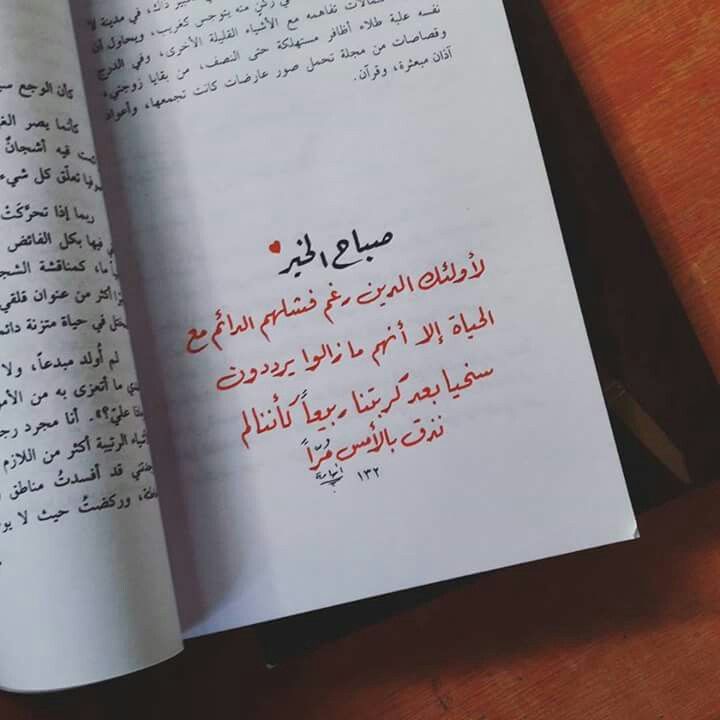 نفسه علبة طلاء أظافر مستهلكة حتى النصف، من بقايا زوجتي،
وقصاصات من مجلة تحمل صور عارضات كانت تجمعها، وأعواد
آذان مبعثرة، وقرآن.
صباح الخير
لأولئك الذين رغم فشلهم الدائم مع
الحياة إلا أنهم ما زالوا يرددون
سنحيا بعد كربتنا ربيعاً كأننا لم
نذق بالأمس مُرّاً
١٣٢
كأن الوجع
كأنما يصر
فيه أشجانٌ
تعلّق كل شيء
ربما إذا تحرّكتْ
فيها بكل الفائض
كمناقشة
أكثر من عنوان قلقي
في حياة متزنة
لم أُولد مبدعاً، ولا
ما أتعزى به من
عليّ؟». أنا مجرد
الرتيبة أكثر من اللازم
قد أفسدتُ مناطق
وركضتُ حيث لا